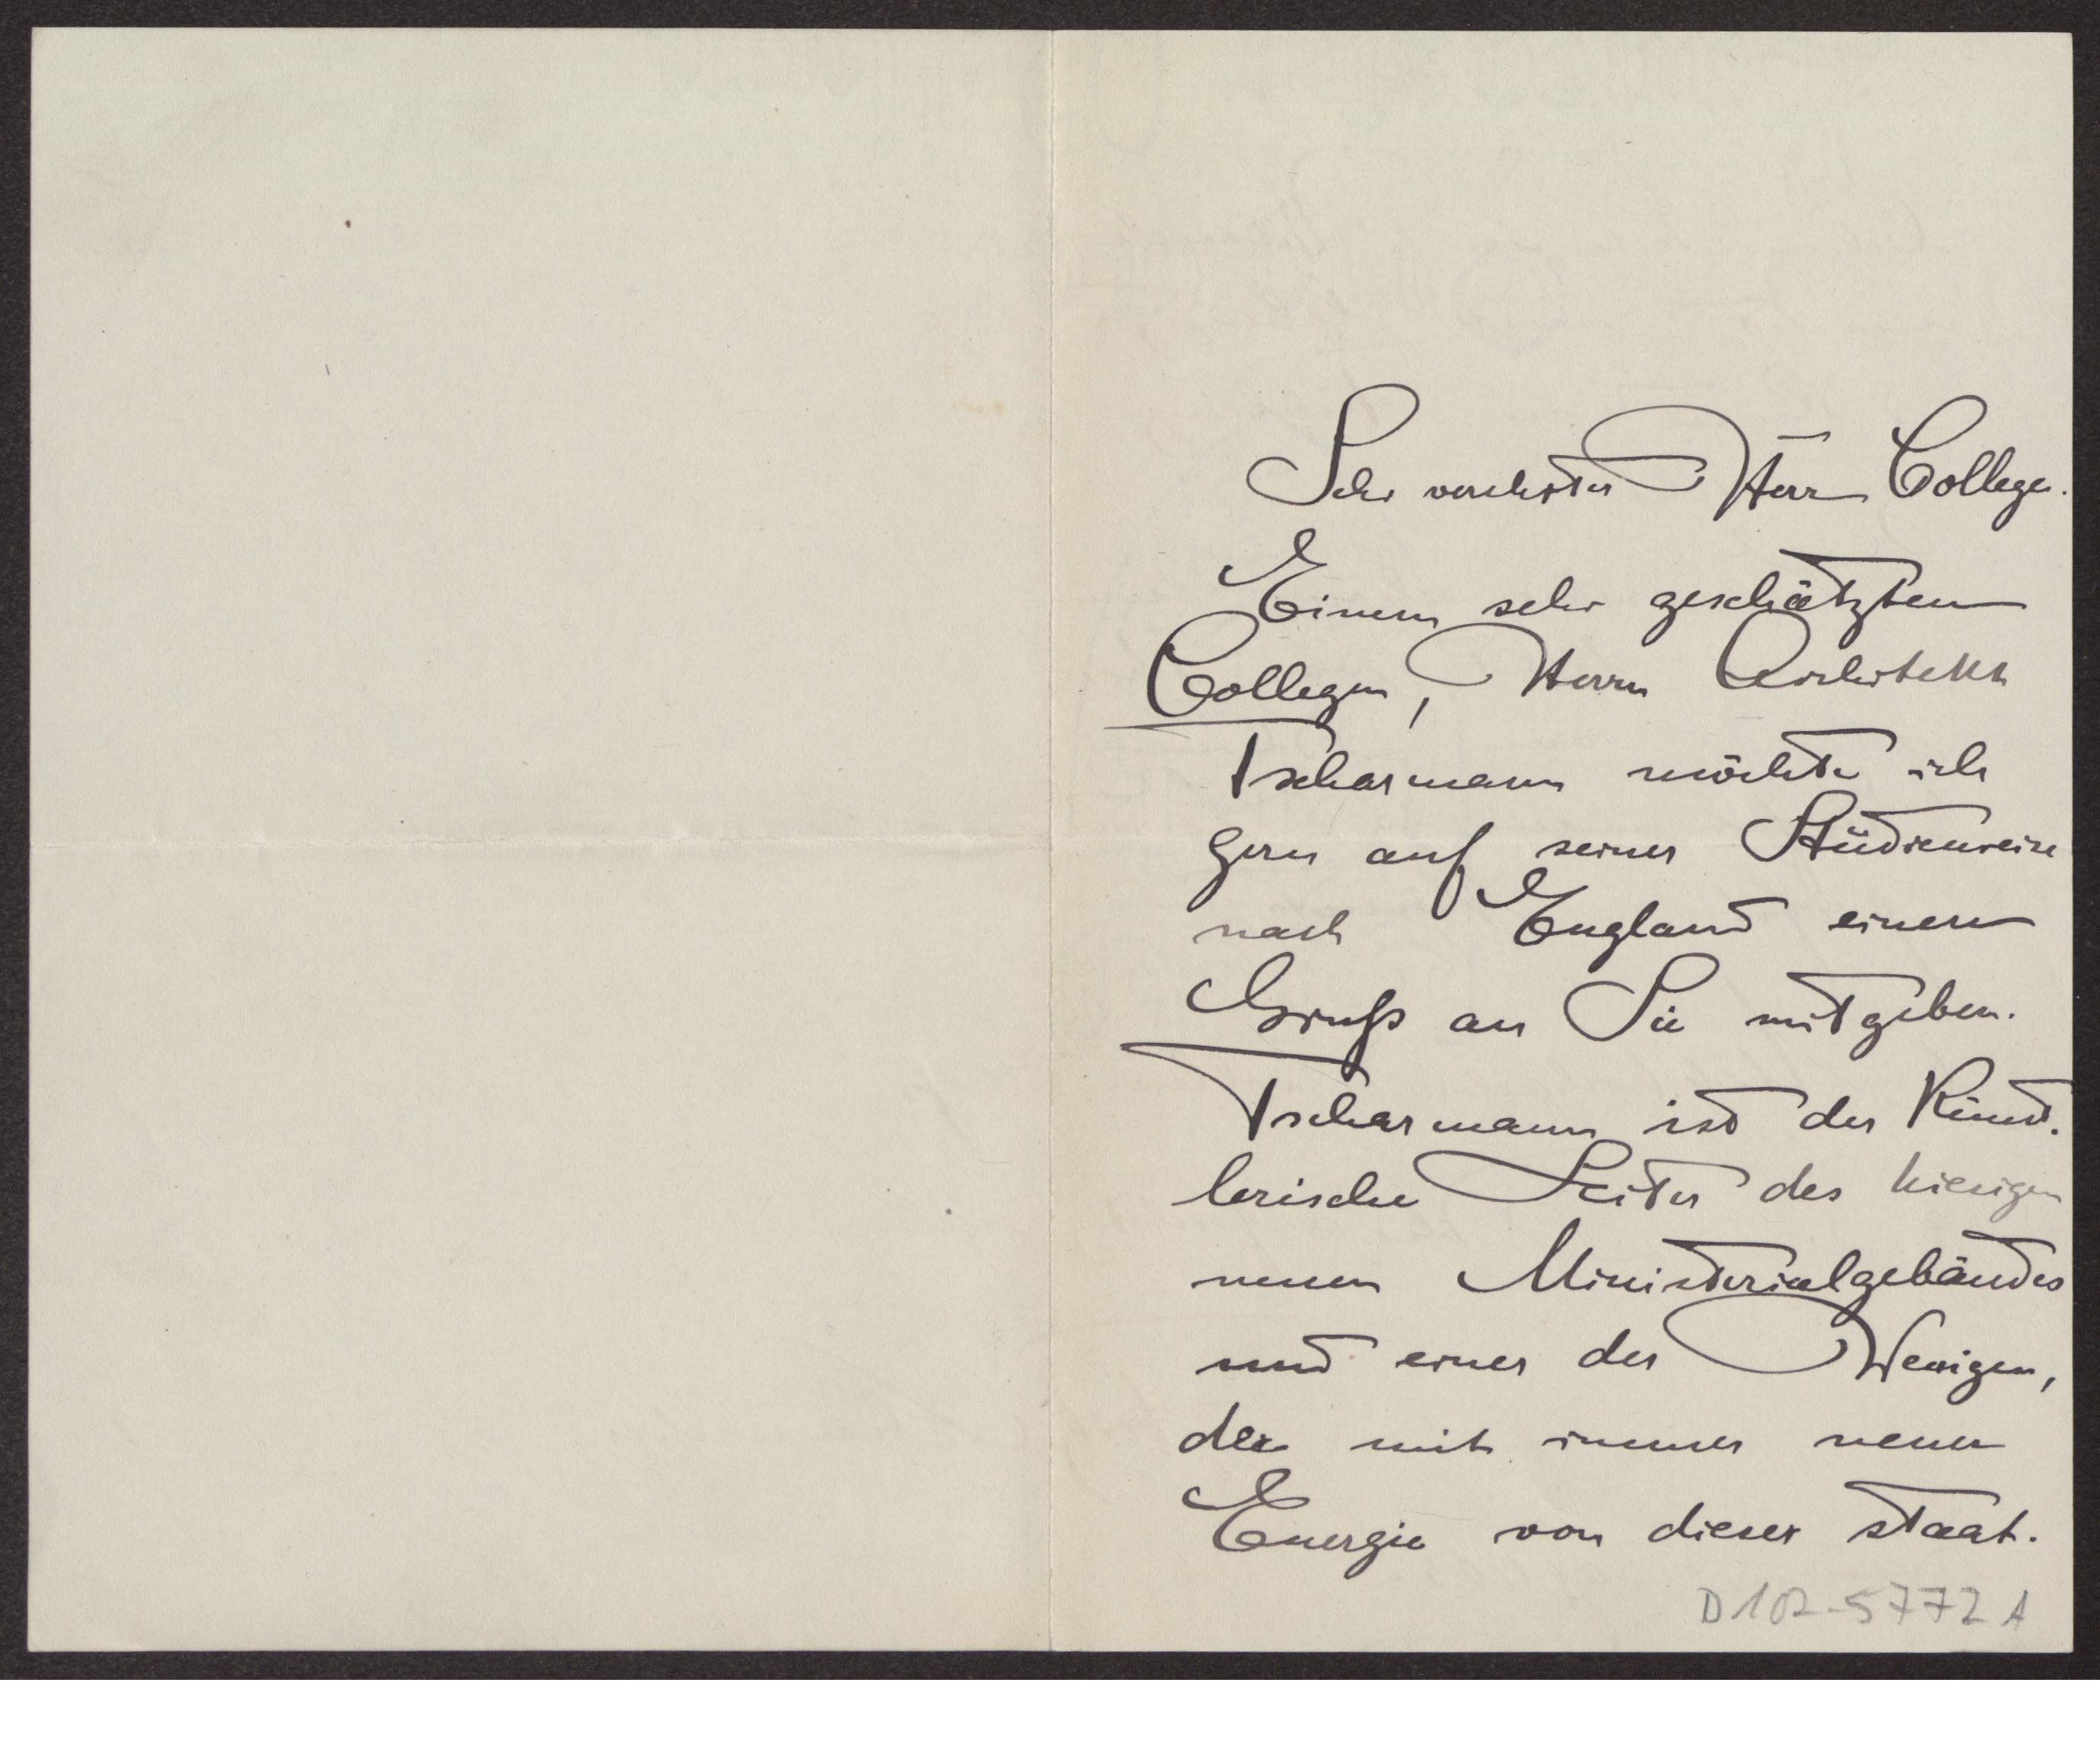 Sehr verehrter Herr College.
Einem sehr geschätzten
Collegen, Herrn Architekt
Tscharmann möchte ich
gern auf seiner Studienreise
nach England einen
Gruß an Sie mitgeben.
Tscharmann ist der Künst.
lerische Leiter des hiesigen
neuen Ministerialgebäudes
und einer der Wenigen,
der mit immer neuer
Energie von dieser staat.
D 102-5772 A